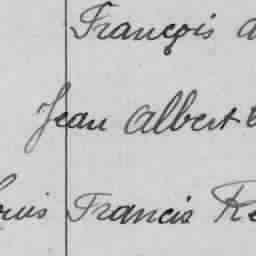 François
Jean Albert
Francis